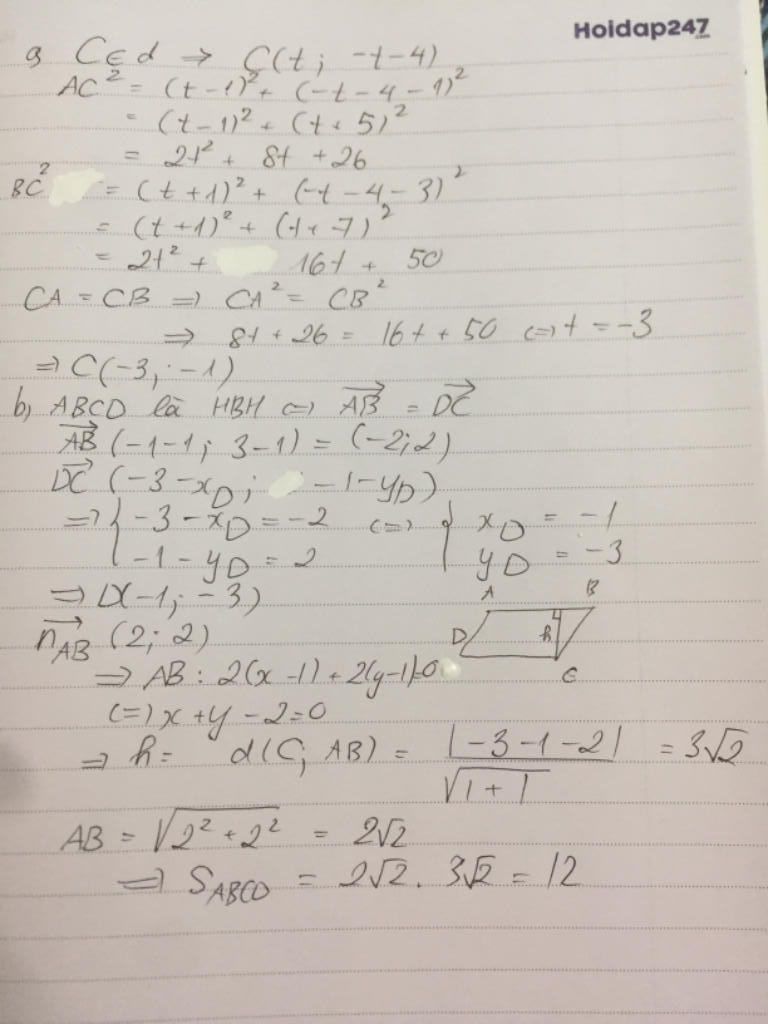 Hoidap247
a, C∈d ⇒ C(t; -t-4)
AC² = (t-1)² + (-t-4-1)²
= (t-1)² + (t+5)²
= 2t² + 8t + 26
BC² = (t+1)² + (-t-4-3)²
= (t+1)² + (t+7)²
= 2t² + 16t + 50
CA = CB ⇒ CA² = CB²
⇒ 8t + 26 = 16t + 50 ⇔ t = -3
⇒ C(-3; -1)
b, ABCD là HBH ⇔ \overrightarrow{AB} = \overrightarrow{DC}
\overrightarrow{AB} (-1-1; 3-1) = (-2; 2)
\overrightarrow{DC} (-3-x_D; -1-y_D)
⇒ { -3-x_D = -2 ⇔ { x_D = -1
-1-y_D = 2 y_D = -3
⇒ D(-1; -3)
A B
\overrightarrow{n_{AB}} (2; 2)
D h
⇒ AB: 2(x-1)+2(y-1)=0
C
⇔ x+y-2=0
⇒ h = d(C; AB) = |-3-1-2| / √(1+1) = 3√2
AB = √(2²+2²) = 2√2
⇒ S_{ABCD} = 2√2 . 3√2 = 12